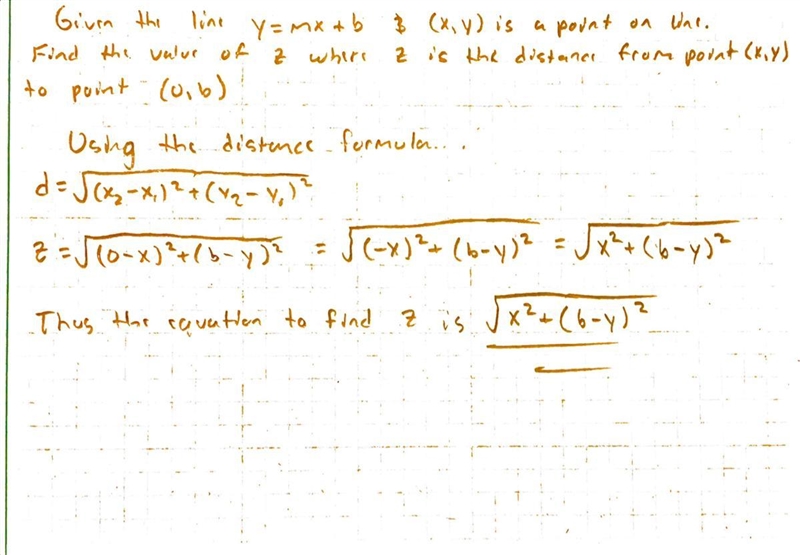 Given the line y = mx + b & (x,y) is a point on line.
Find the value of z where z is the distance from point (x,y)
to point (0,b)
Using the distance formula...
d = √(x₂-x₁)² + (y₂-y₁)²
z = √(0-x)² + (b-y)² = √(-x)² + (b-y)² = √x² + (b-y)²
Thus the equation to find z is √x² + (b-y)²